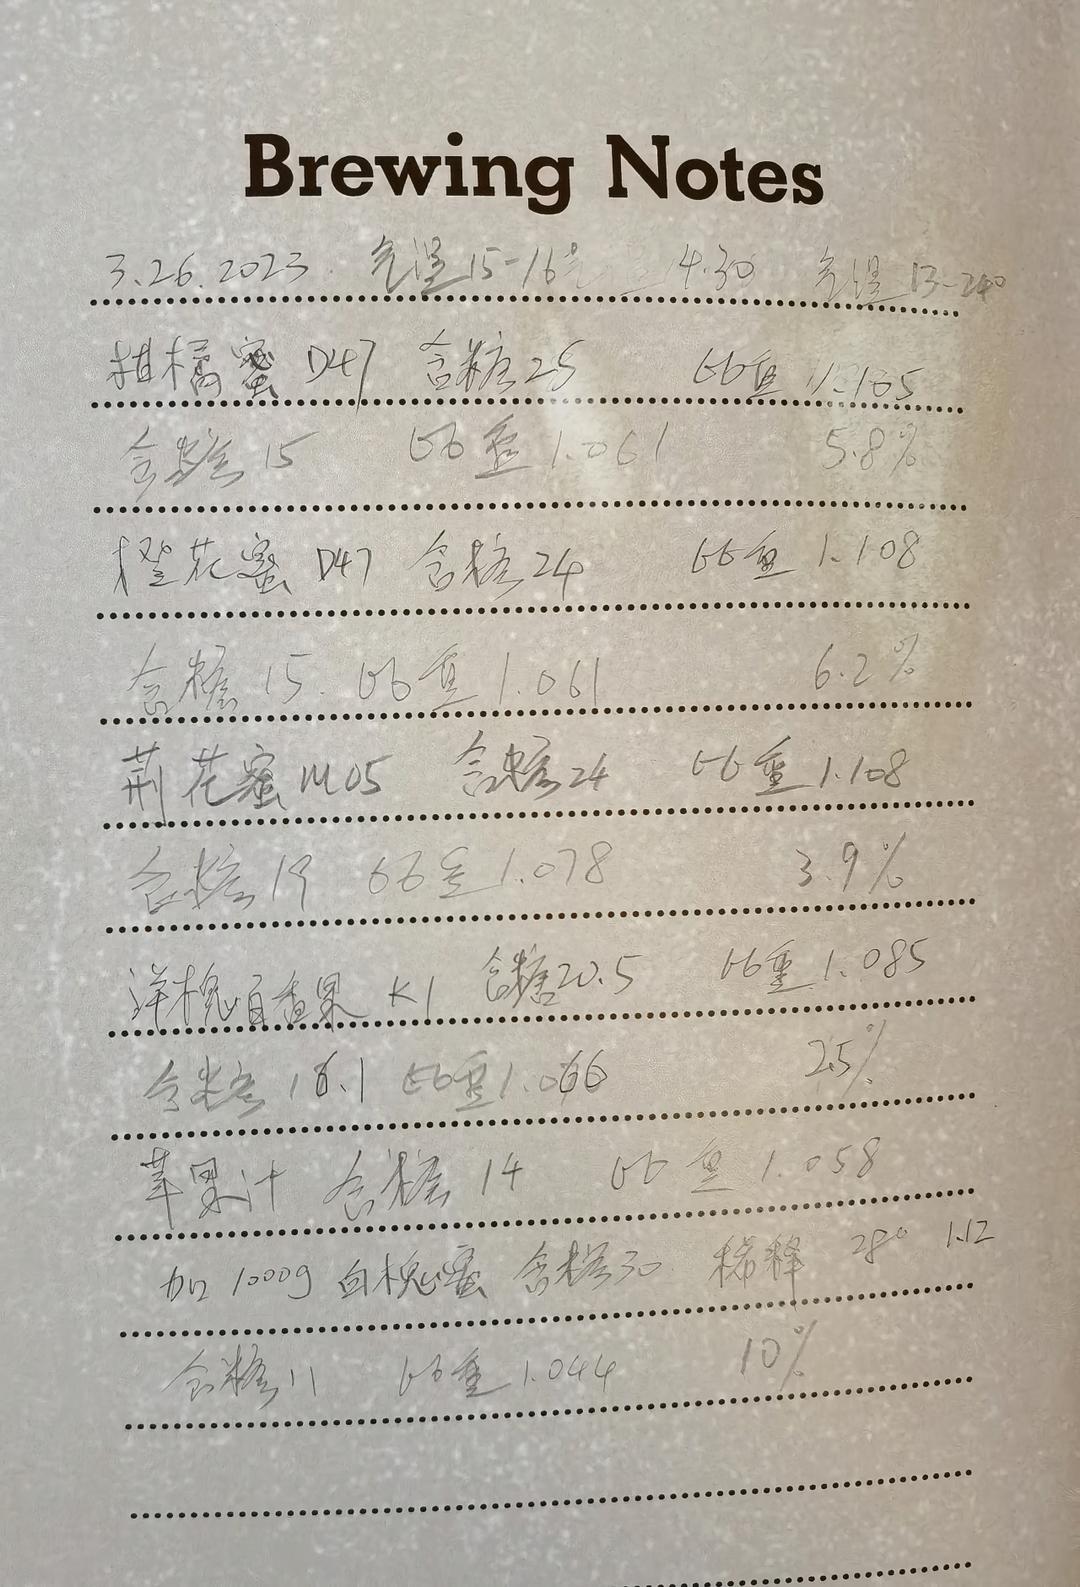 Brewing Notes
3.26.2023 气温15-16° 4.30 气温13-24°
柑橘蜜 D47 含糖25 比重 1.105
含糖15 比重1.061 5.8%
橙花蜜 D47 含糖24 比重 1.108
含糖15. 比重1.061 6.2%
荆花蜜 M05 含糖24 比重1.108
含糖19 比重1.078 3.9%
洋槐百香果 K1 含糖20.5 比重1.085
含糖16.1 比重1.066 2.5%
苹果汁 含糖14 比重1.058
加1000g白槐蜜 含糖30 稀释 28° 1.12
含糖11 比重1.044 10%